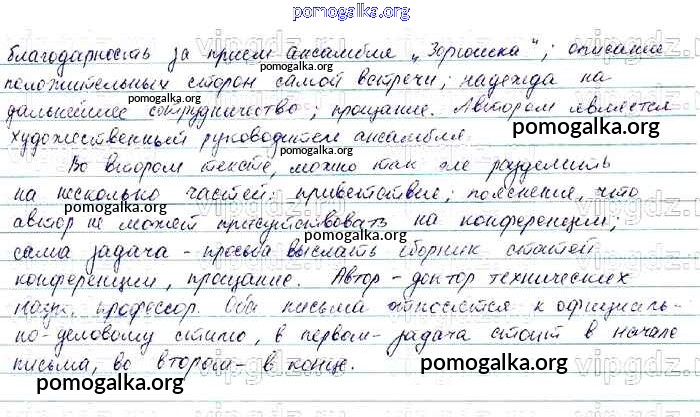 pomogalka.org
благодарность за приём ансамбля „Зорюшка“; описание
pomogalka.org
положительных сторон самой встречи; надежда на
pomogalka.org
дальнейшее сотрудничество; прощание. Автором является
художественный руководитель ансамбля.
pomogalka.org
Во втором тексте, можно так же разделить
pomogalka.org
на несколько частей: приветствие; пояснение, что
pomogalka.org
автор не может присутствовать на конференции;
pomogalka.org
сама задача - просьба выслать сборник статей
конференции, прощание. Автор - доктор технических
pomogalka.org
наук, профессор. Оба письма относятся к официаль-
но-деловому стилю, в первом - задача стоит в начале
письма, во втором - в конце.
pomogalka.org
pomogalka.org
vipgdz.ru